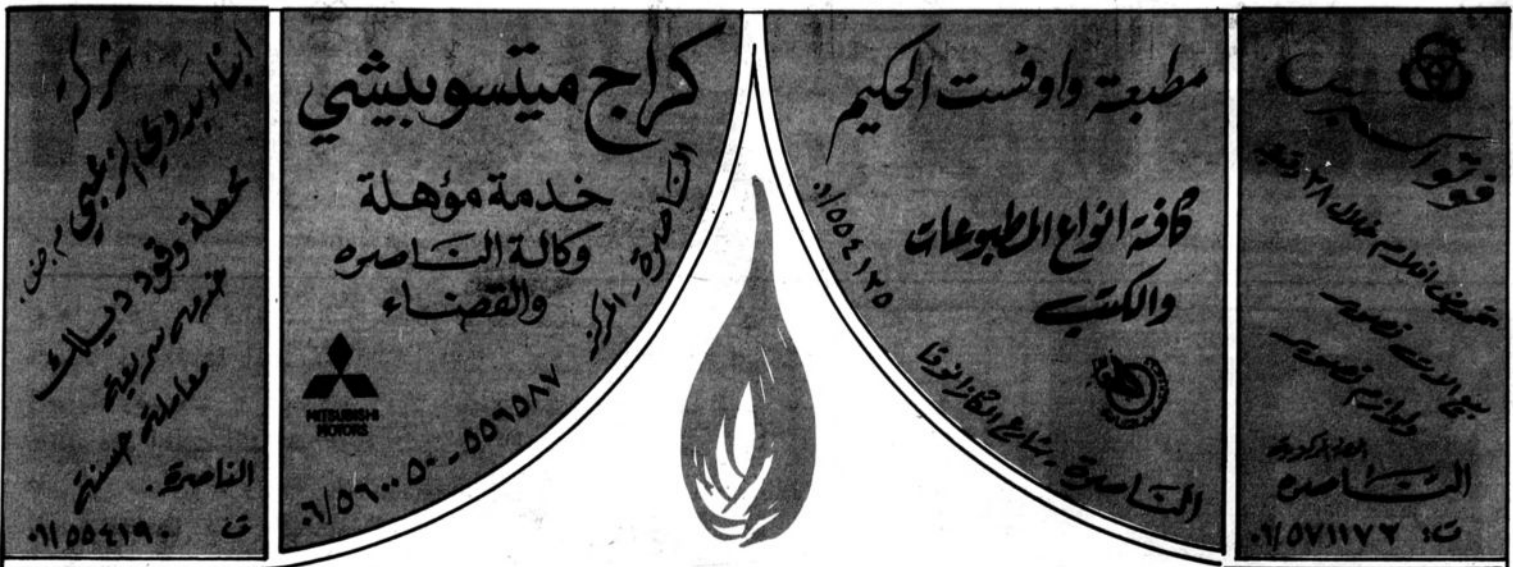 فوتو اكسبرس
تحميض افلام خلال ٢٨ دقيقة
بيع الات تصوير
ولوازم تصوير
الناصره
ت: ٠٦/٥٧١١٧٢
مطبعة واوفست الحكيم
كافة انواع المطبوعات
والكتب
٠٦/٥٥٤١٢٥
الناصرة - شارع الكازانوفا
كراج ميتسوبيشي
خدمة مؤهلة
وكالة الناصره
والقضاء
الناصرة - المركز
٠٦/٥٩٠٠٥٠ - ٥٥٦٥٨٧
MITSUBISHI
MOTORS
شركة
ابناء بدوي الزعبي م.ض.
محطة وقود ديلك
خدمة سريعة
معاملة حسنة
الناصرة.
ت ٠٦/٥٥٤١٩٠